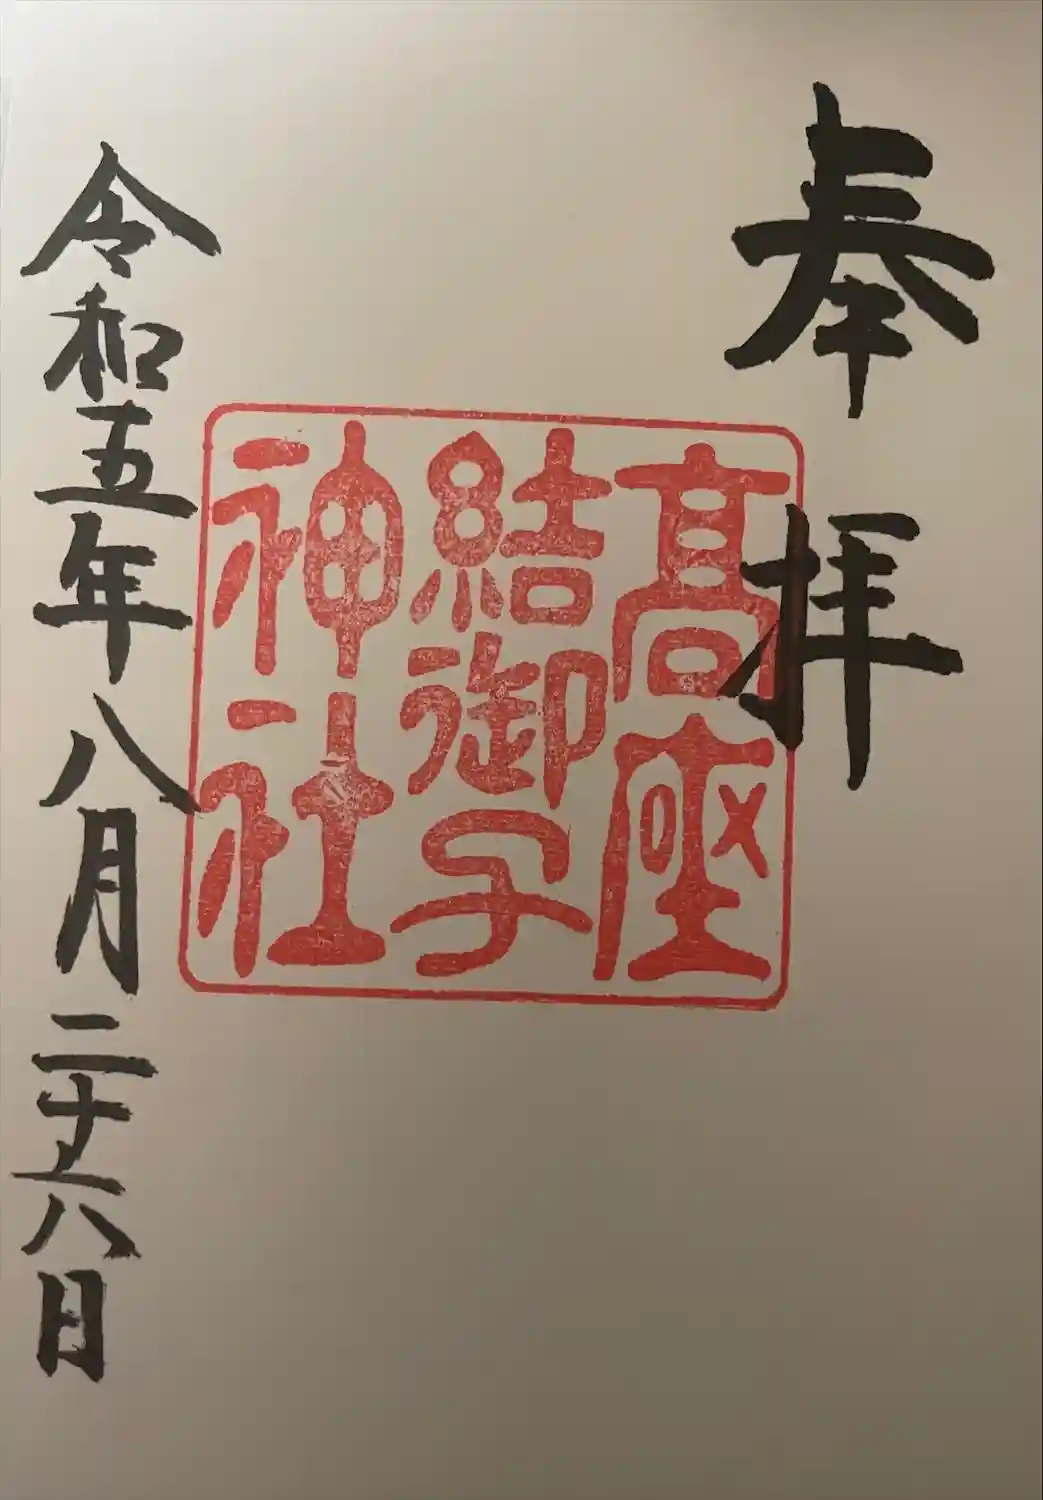 奉拝
高座
結御子
神社
令和五年八月二十六日